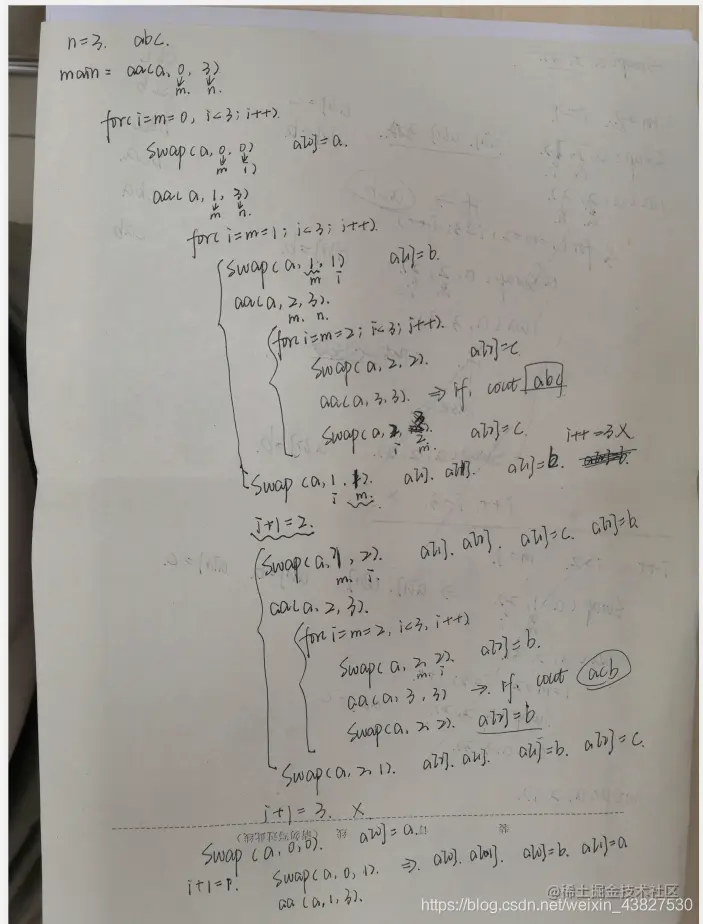 n=3. abc.
main = aa(a, 0, 3)
m. n.
for(i=m=0, i<3; i++).
Swap(a, 0, 0) a[0]=a.
m i)
aa(a, 1, 3)
m n.
for(i=m=1; i<3; i++).
Swap(a, 1, 1) a[1]=b.
m i
aa(a, 2, 3).
m. n.
for(i=m=2; i<3; i++).
Swap(a, 2, 2). a[2]=c
aa(a, 3, 3). => if, cout abc
Swap(a, 2, 2). a[2]=c. i++=3 X
i m.
Swap(a, 1, 1). a[1]. a[1]. a[1]=b.
i m.
i+1=2.
Swap(a, 1, 2). a[1]. a[2]. a[1]=c. a[2]=b.
m. i.
aa(a, 2, 3).
for(i=m=2, i<3, i++)
Swap(a, 2, 2). a[2]=b.
m. i
aa(a, 3, 3) => if, cout acb
Swap(a, 2, 2). a[2]=b
Swap(a, 2, 1). a[2]. a[1]. a[1]=b. a[2]=c.
i+1=3. X
装 订 线 (请勿写过此线)
Swap(a, 0, 0). a[0]=a.
i+1=1. Swap(a, 0, 1). => a[0]. a[1]. a[0]=b. a[1]=a
aa(a, 1, 3).
@稀土掘金技术社区
https://blog.csdn.net/weixin_43827530